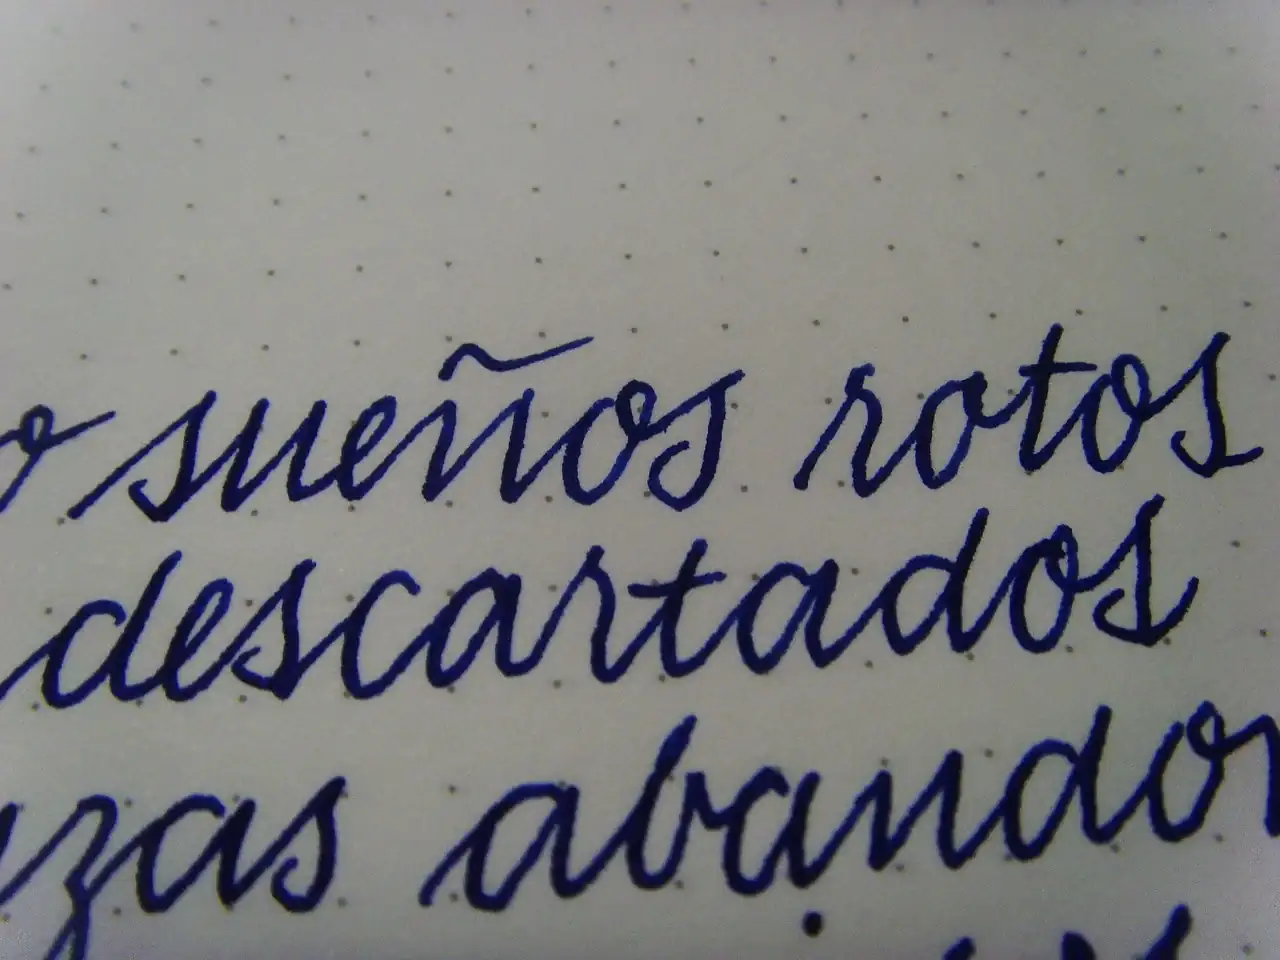 o sueños rotos
descartados
zas abando